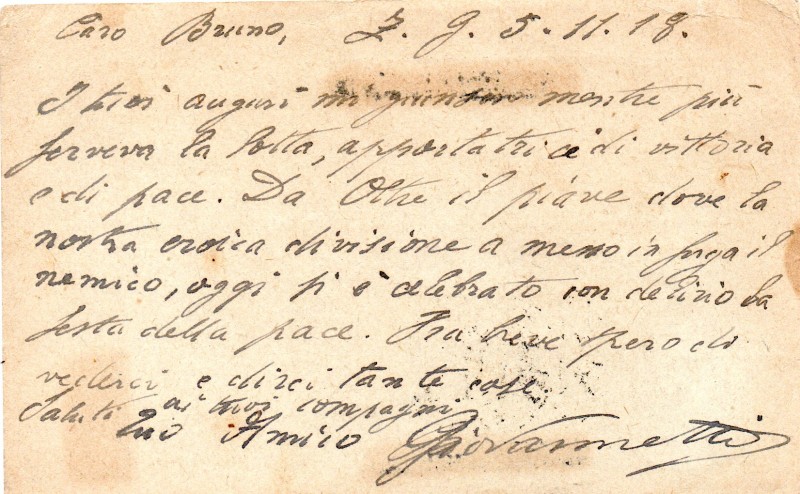 Caro Bruno, Z. G. 5. 11. 18.
I tuoi auguri mi giunsero mentre più
ferveva la lotta, apportatrice di vittoria
e di pace. Da Oltre il piave dove la
nostra eroica divisione a messo in fuga il
nemico, oggi si è celebrato con delirio la
festa della pace. Fra breve spero di
vederci e dirci tante cose.
Saluti ai tuoi compagni
Tuo Amico Giovannetti